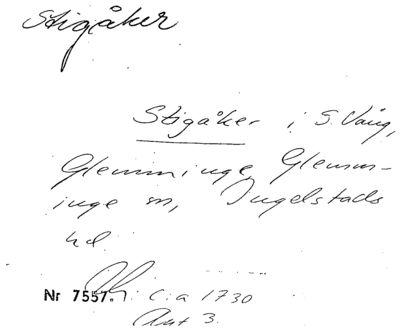 Stigåker
Stigåker i S. Vång,
Glemminge, Glemm-
inge sn, Ingelstads
hd.
Nr 7557. c:a 1730
Akt 3.